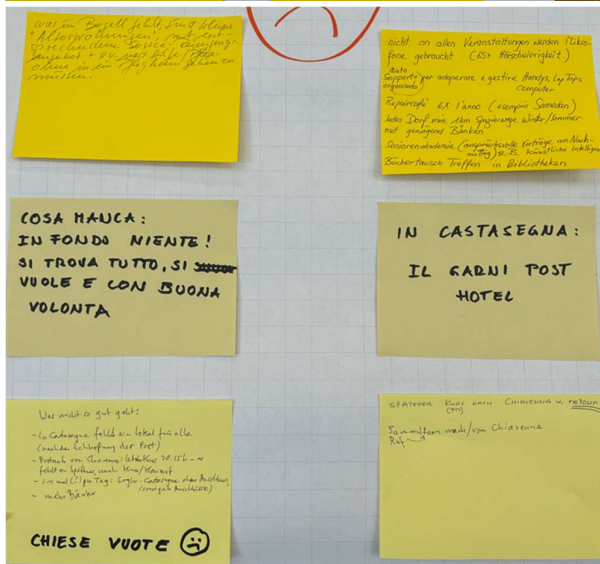 was im Bergell fehlt, sind kleine
"Alterswohnungen" mit ent-
sprechendem Service/
angebot + ev. med. Hilfe,
ohne in ein Pflegheim gehen zu
müssen.
nicht an allen Veranstaltungen werden Mikro-
fone gebraucht (65+ Hörschwierigkeit)
aiuto
Supporto per adoperare e gestire Handys, Lap Tops
organizzato computer
Repaircafé 6x l'anno (esempio Samedan)
Jedes Dorf min. 1km Spazierwege Winter/Sommer
mit genügend Bänken
Seniorenakademie (anspruchsvolle Vorträge am Nach-
mittag) z.B. Künstliche Intelligenz
Büchertausch Treffen in Bibliotheken
COSA MANCA:
IN FONDO NIENTE!
SI TROVA TUTTO, SI
VUOLE E CON BUONA
VOLONTA
IN CASTASEGNA:
IL GARNI POST
HOTEL
Was nicht so gut geht:
- In Castasegna fehlt ein Lokal für alle
(nach der Schliessung der Post)
- Postauto von Chiavenna: letzter Kurs 20.15h -
fehlt ein späterer, nach Kino/Konzert
- mal (!) pro Tag: Soglio - Castasegna ohne Anschluss
- mehr Bänke
CHIESE VUOTE
SPÄTERER KURS NACH CHIAVENNA U. retour
(PTT)
Sammeltaxi nach/von Chiavenna
Ruf